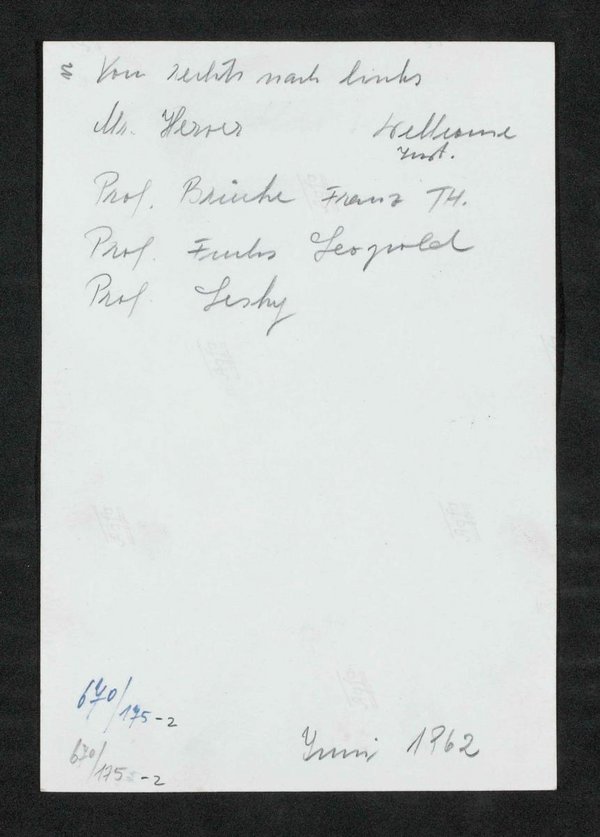 Von rechts nach links
Mr. Herver Wellcome
Inst.
Prof. Brücke Franz TH.
Prof. Fuchs Leopold
Prof. Lesky
670/175-2
670/175-2
Juni 1962